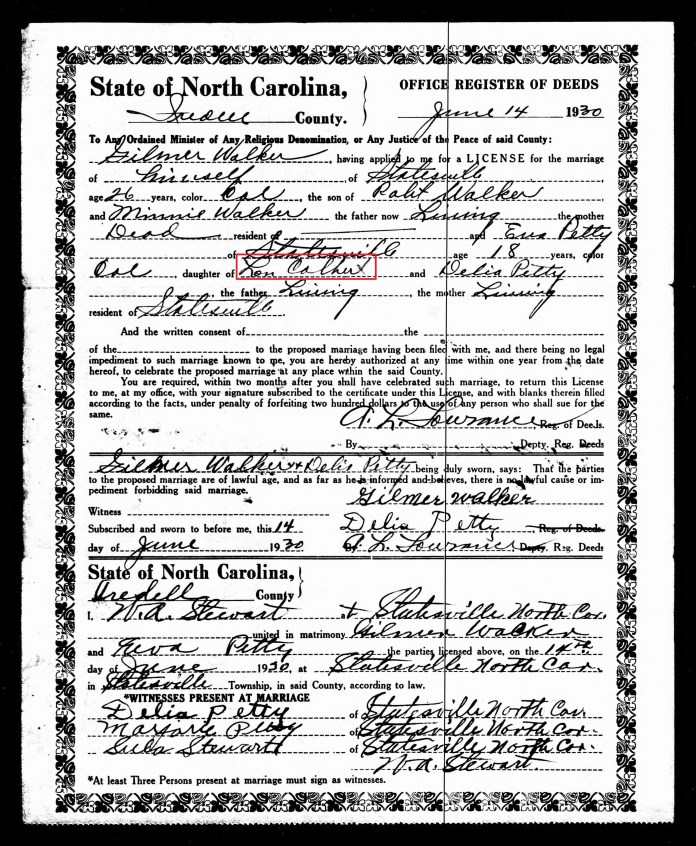 State of North Carolina,
Iredell County.
OFFICE REGISTER OF DEEDS
June 14 1930
To Any Ordained Minister of Any Religious Denomination, or Any Justice of the Peace of said County:
Gilmer Walker, having applied to me for a LICENSE for the marriage
of himself of Statesville,
age 26 years, color Col, the son of Robt Walker
and Minnie Walker the father now Living, the mother
Dead resident of and Eva Petty
of Statesville age 18 years, color
Col, daughter of Lon and Delia Petty
, the father Living, the mother Living
resident of Statesville
And the written consent of the
of the to the proposed marriage having been filed with me, and there being no legal
impediment to such marriage known to me, you are hereby authorized at any time within one year from the date
hereof, to celebrate the proposed marriage at any place within the said County.
You are required, within two months after you shall have celebrated such marriage, to return this License
to me, at my office, with your signature subscribed to the certificate under this License, and with blanks therein filled
according to the facts, under penalty of forfeiting two hundred dollars to the use of any person who shall sue for the
same.
A. L. Lowrance Reg. of Deeds.
By Depty. Reg. Deeds
Gilmer Walker & Delia Petty being duly sworn, says: That the parties
to the proposed marriage are of lawful age, and as far as he is informed and believes, there is no lawful cause or im-
pediment forbidding said marriage.
Gilmer Walker
Witness
Subscribed and sworn to before me, this 14 Delia Petty Reg. of Deeds.
day of June 1930 By A. L. Lowrance Depty. Reg. Deeds
State of North Carolina,
Iredell County
I, W. A. Stewart, of Statesville North Car.
united in matrimony Gilmer Walker
and Neva Petty the parties licensed above, on the 14th
day of June 1930, at Statesville North Car.
in Statesville Township, in said County, according to law.
*WITNESSES PRESENT AT MARRIAGE
Delia Petty of Statesville North Car.
of Statesville North Car.
Stewart of Statesville North Car.
W. A. Stewart.
*At least Three Persons present at marriage must sign as witnesses.